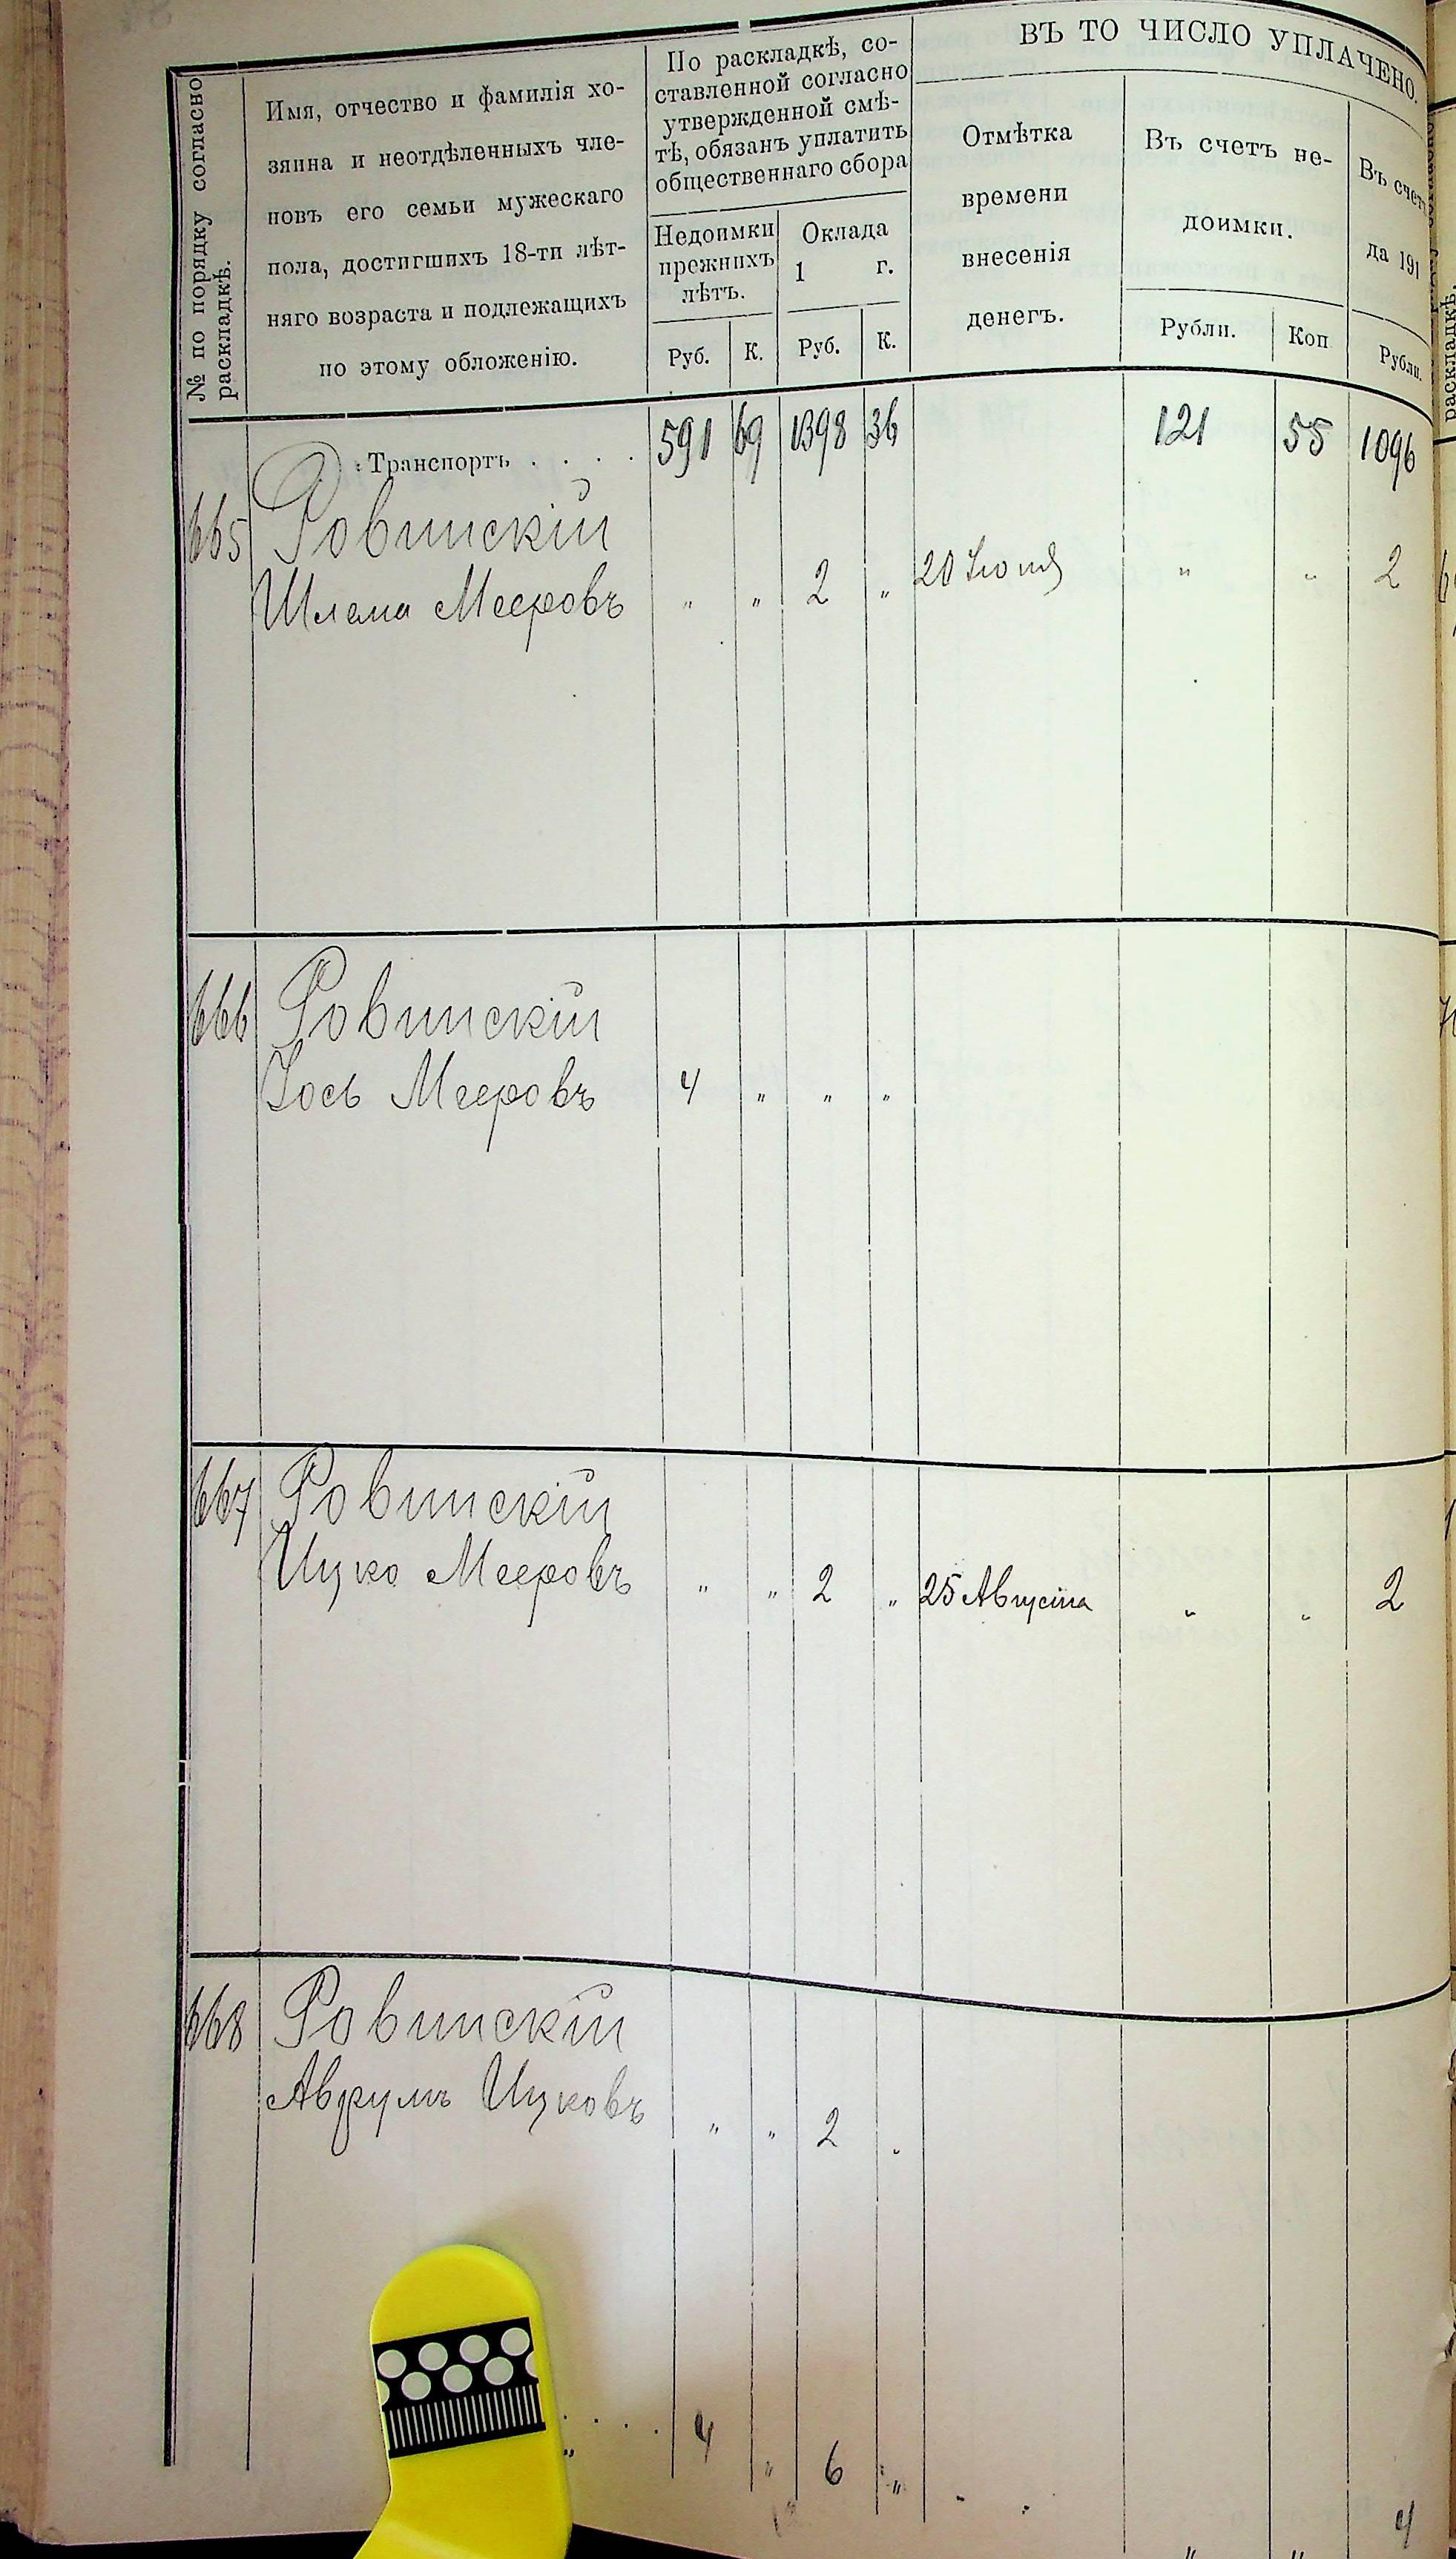 № по порядку согласно
раскладкѣ.
Имя, отчество и фамилія хо-
зяина и неотдѣленныхъ чле-
новъ его семьи мужескаго
пола, достигшихъ 18-ти лѣт-
няго возраста и подлежащихъ
по этому обложенію.
По раскладкѣ, со-
ставленной согласно
утвержденной смѣ-
тѣ, обязанъ уплатить
общественнаго сбора
Недоимки
прежнихъ
лѣтъ.
Руб. К.
Оклада
1 г.
Руб. К.
ВЪ ТО ЧИСЛО УПЛАЧЕНО.
Отмѣтка
времени
внесенія
денегъ.
Въ счетъ не-
доимки.
Рубли. Коп
Въ счет
да 191
Рубли.
раскладкѣ.
Транспортъ . . . . 591 69 1398 36 121 55 1096
665 Ровинскій
Шлема Мееровъ " " 2 " 20 Іюня " " 2
666 Ровинскій
Іось Мееровъ 4 " " "
667 Ровинскій
Ицко Мееровъ " " 2 " 25 Августа " " 2
668 Ровинскій
Аврумъ Ицковъ " " 2 "
4 " 6 " " " 4